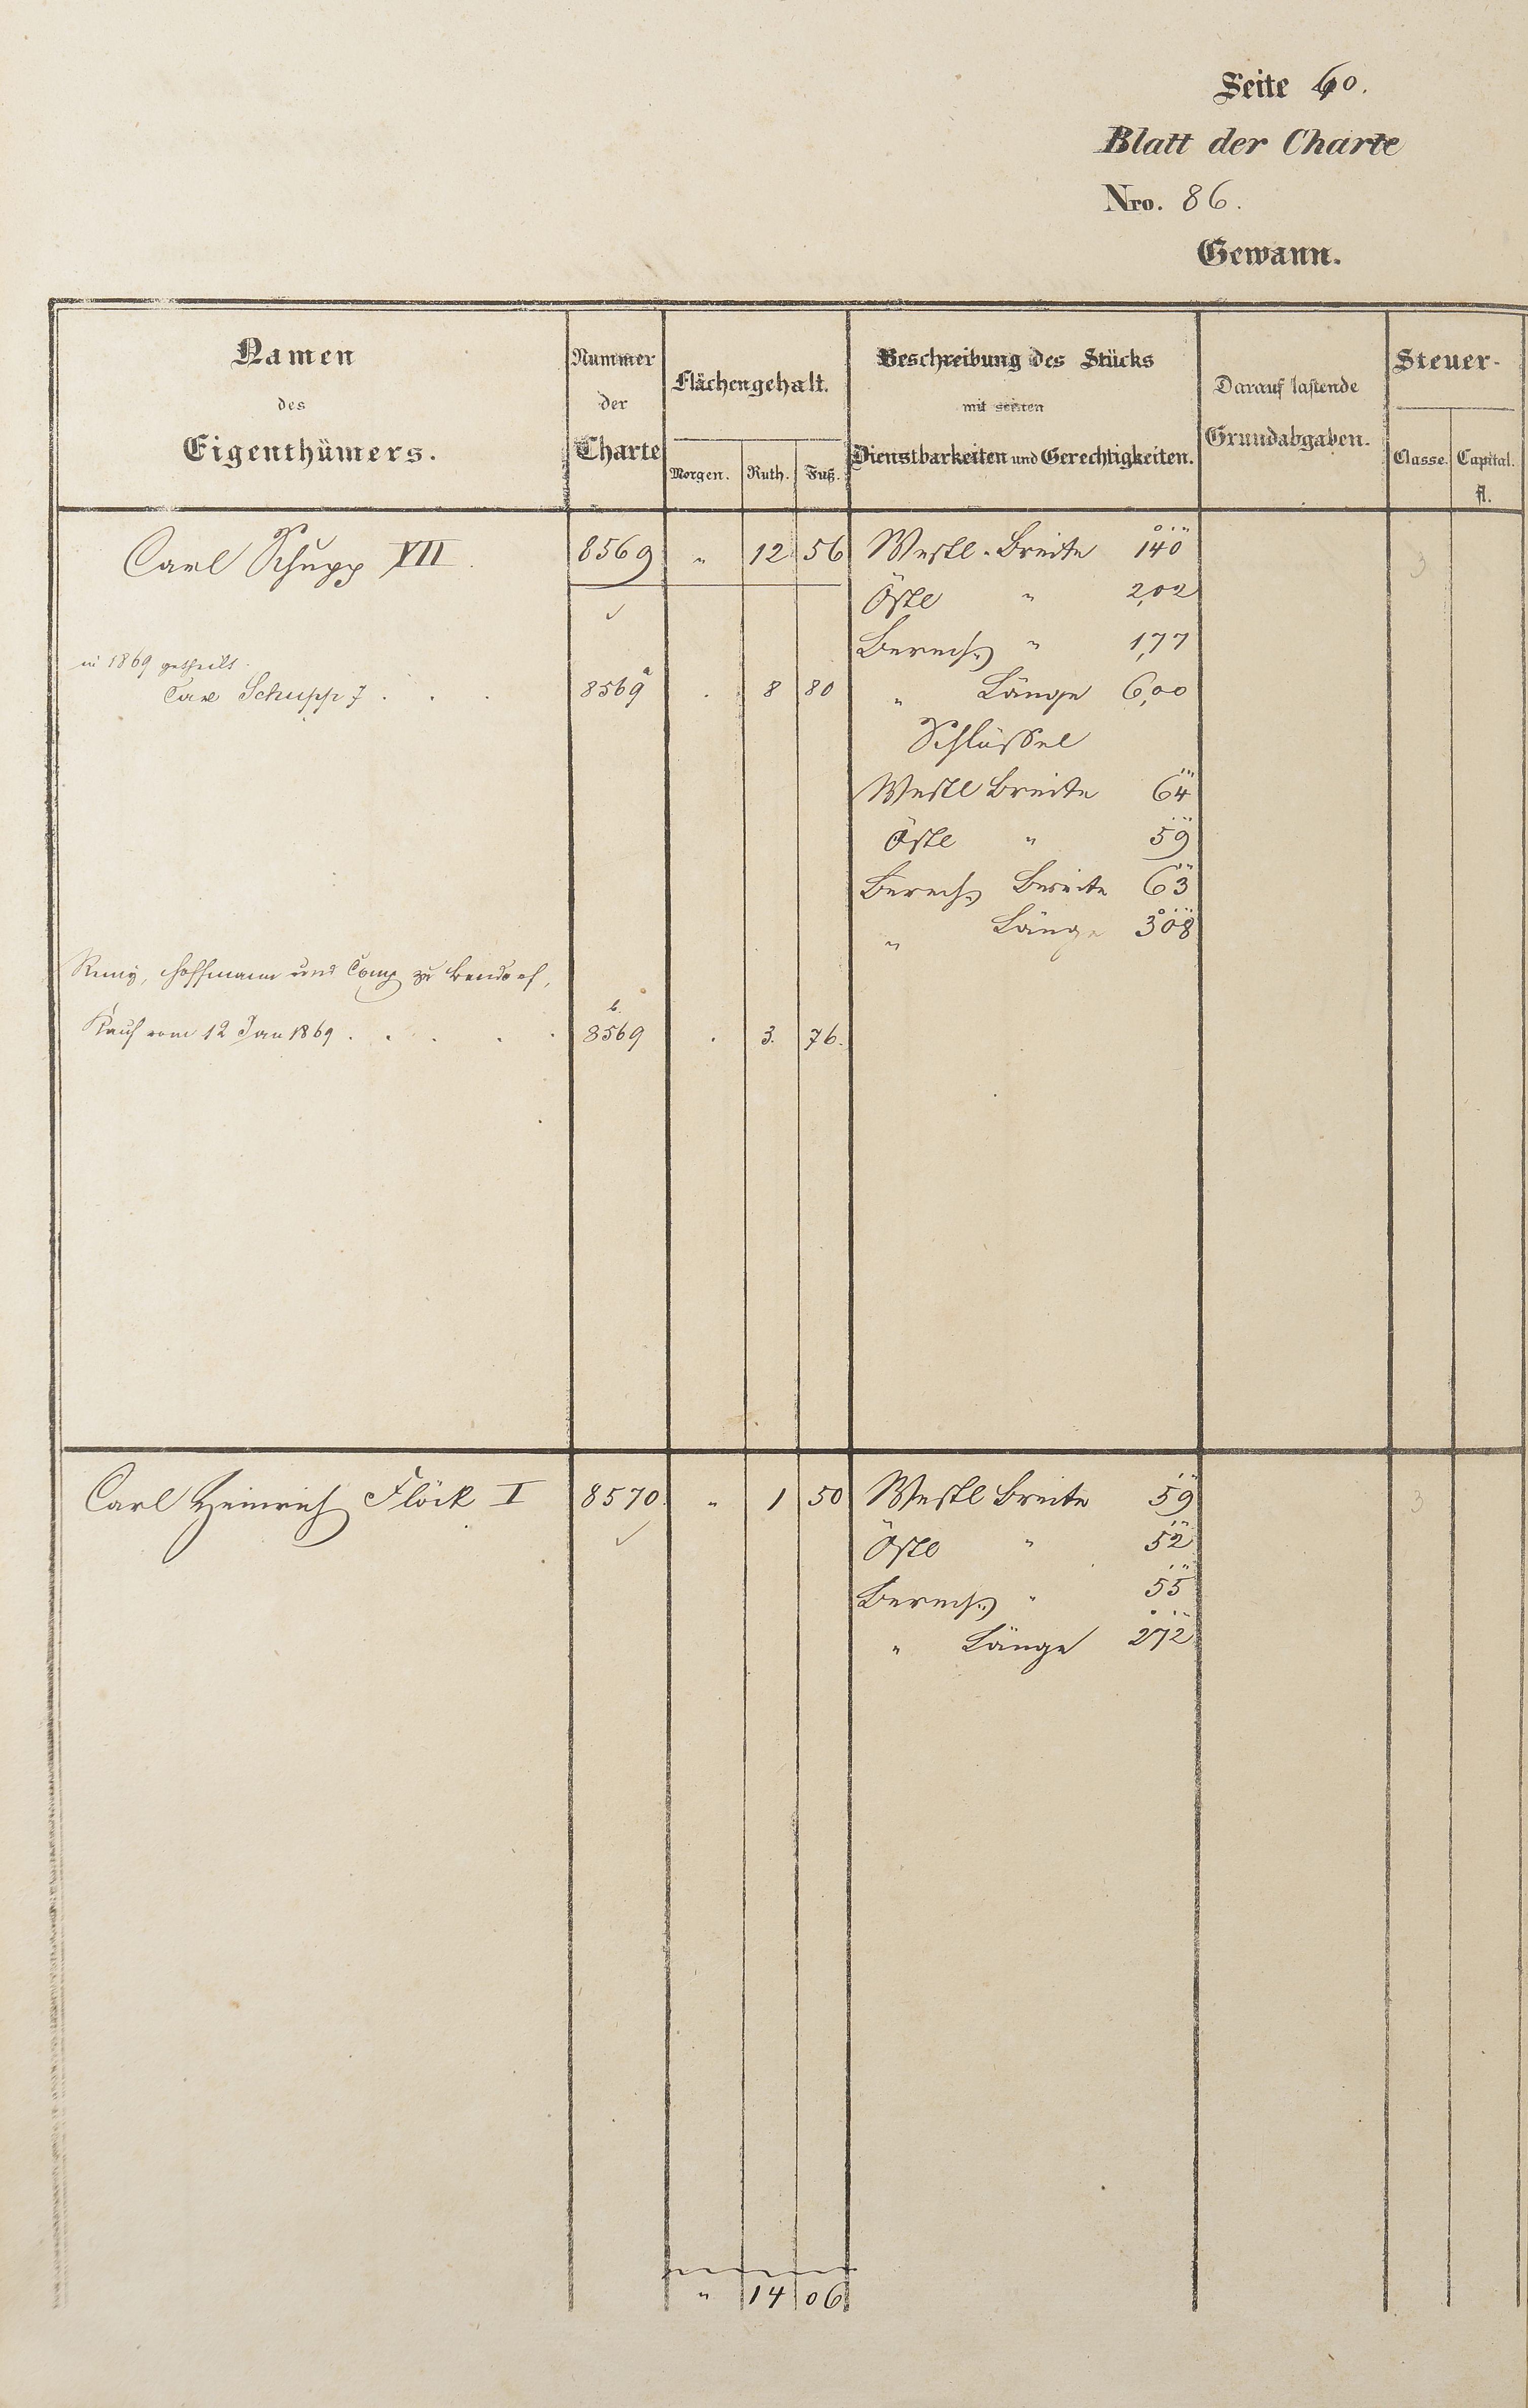 Seite 60.
Blatt der Charte
Nro. 86.
Gewann.
Namen des Eigenthümers.
Nummer der Charte
Flächengehalt.
Morgen. Ruth. Fuß.
Beschreibung des Stücks
mit seinen
Dienstbarkeiten und Gerechtigkeiten.
Darauf lastende
Grundabgaben.
Steuer-
Classe. Capital.
fl.
Carl Schupp VII. 8569 „ 12 56 Westl. Breite 140
Östl „ 2,02
Berech. „ 1,77
in 1869 getheilt.
Carl Schupp 7 . . . 8569a . 8 80 „ Länge 6,00
Schlüssel
Westl Breite 64
Östl „ 59
Berech. Breite 63
„ Länge 308
Remy, Hoffmann und Comp zu Bendorf,
Kauf vom 12 Jan 1869 . . . . . 8569b. . 3. 76.
Carl Heinrich Flöck I 8570. „ 1 50 Westl Breite 59
Östl „ 52
Berech. „ 55
„ Länge 272
„ 14 06
3
3